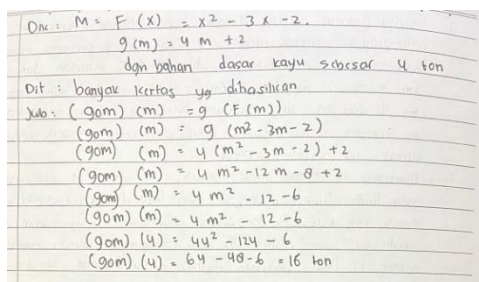 Dik : M = F (x) = x² - 3x - 2.
g(m) = 4 m + 2
dgn bahan dasar kayu sebesar 4 ton
Dit : banyak kertas yg dihasilkan
Jwb : (gom) (m) = g (F(m))
(gom) (m) = g (m² - 3m - 2)
(gom) (m) = 4 (m² - 3m - 2) + 2
(gom) (m) = 4 m² - 12 m - 8 + 2
(gom) (m) = 4 m² - 12 - 6
(gom) (m) = 4 m² - 12 - 6
(gom) (4) = 44² - 124 - 6
(gom) (4) = 64 - 48 - 6 = 16 ton